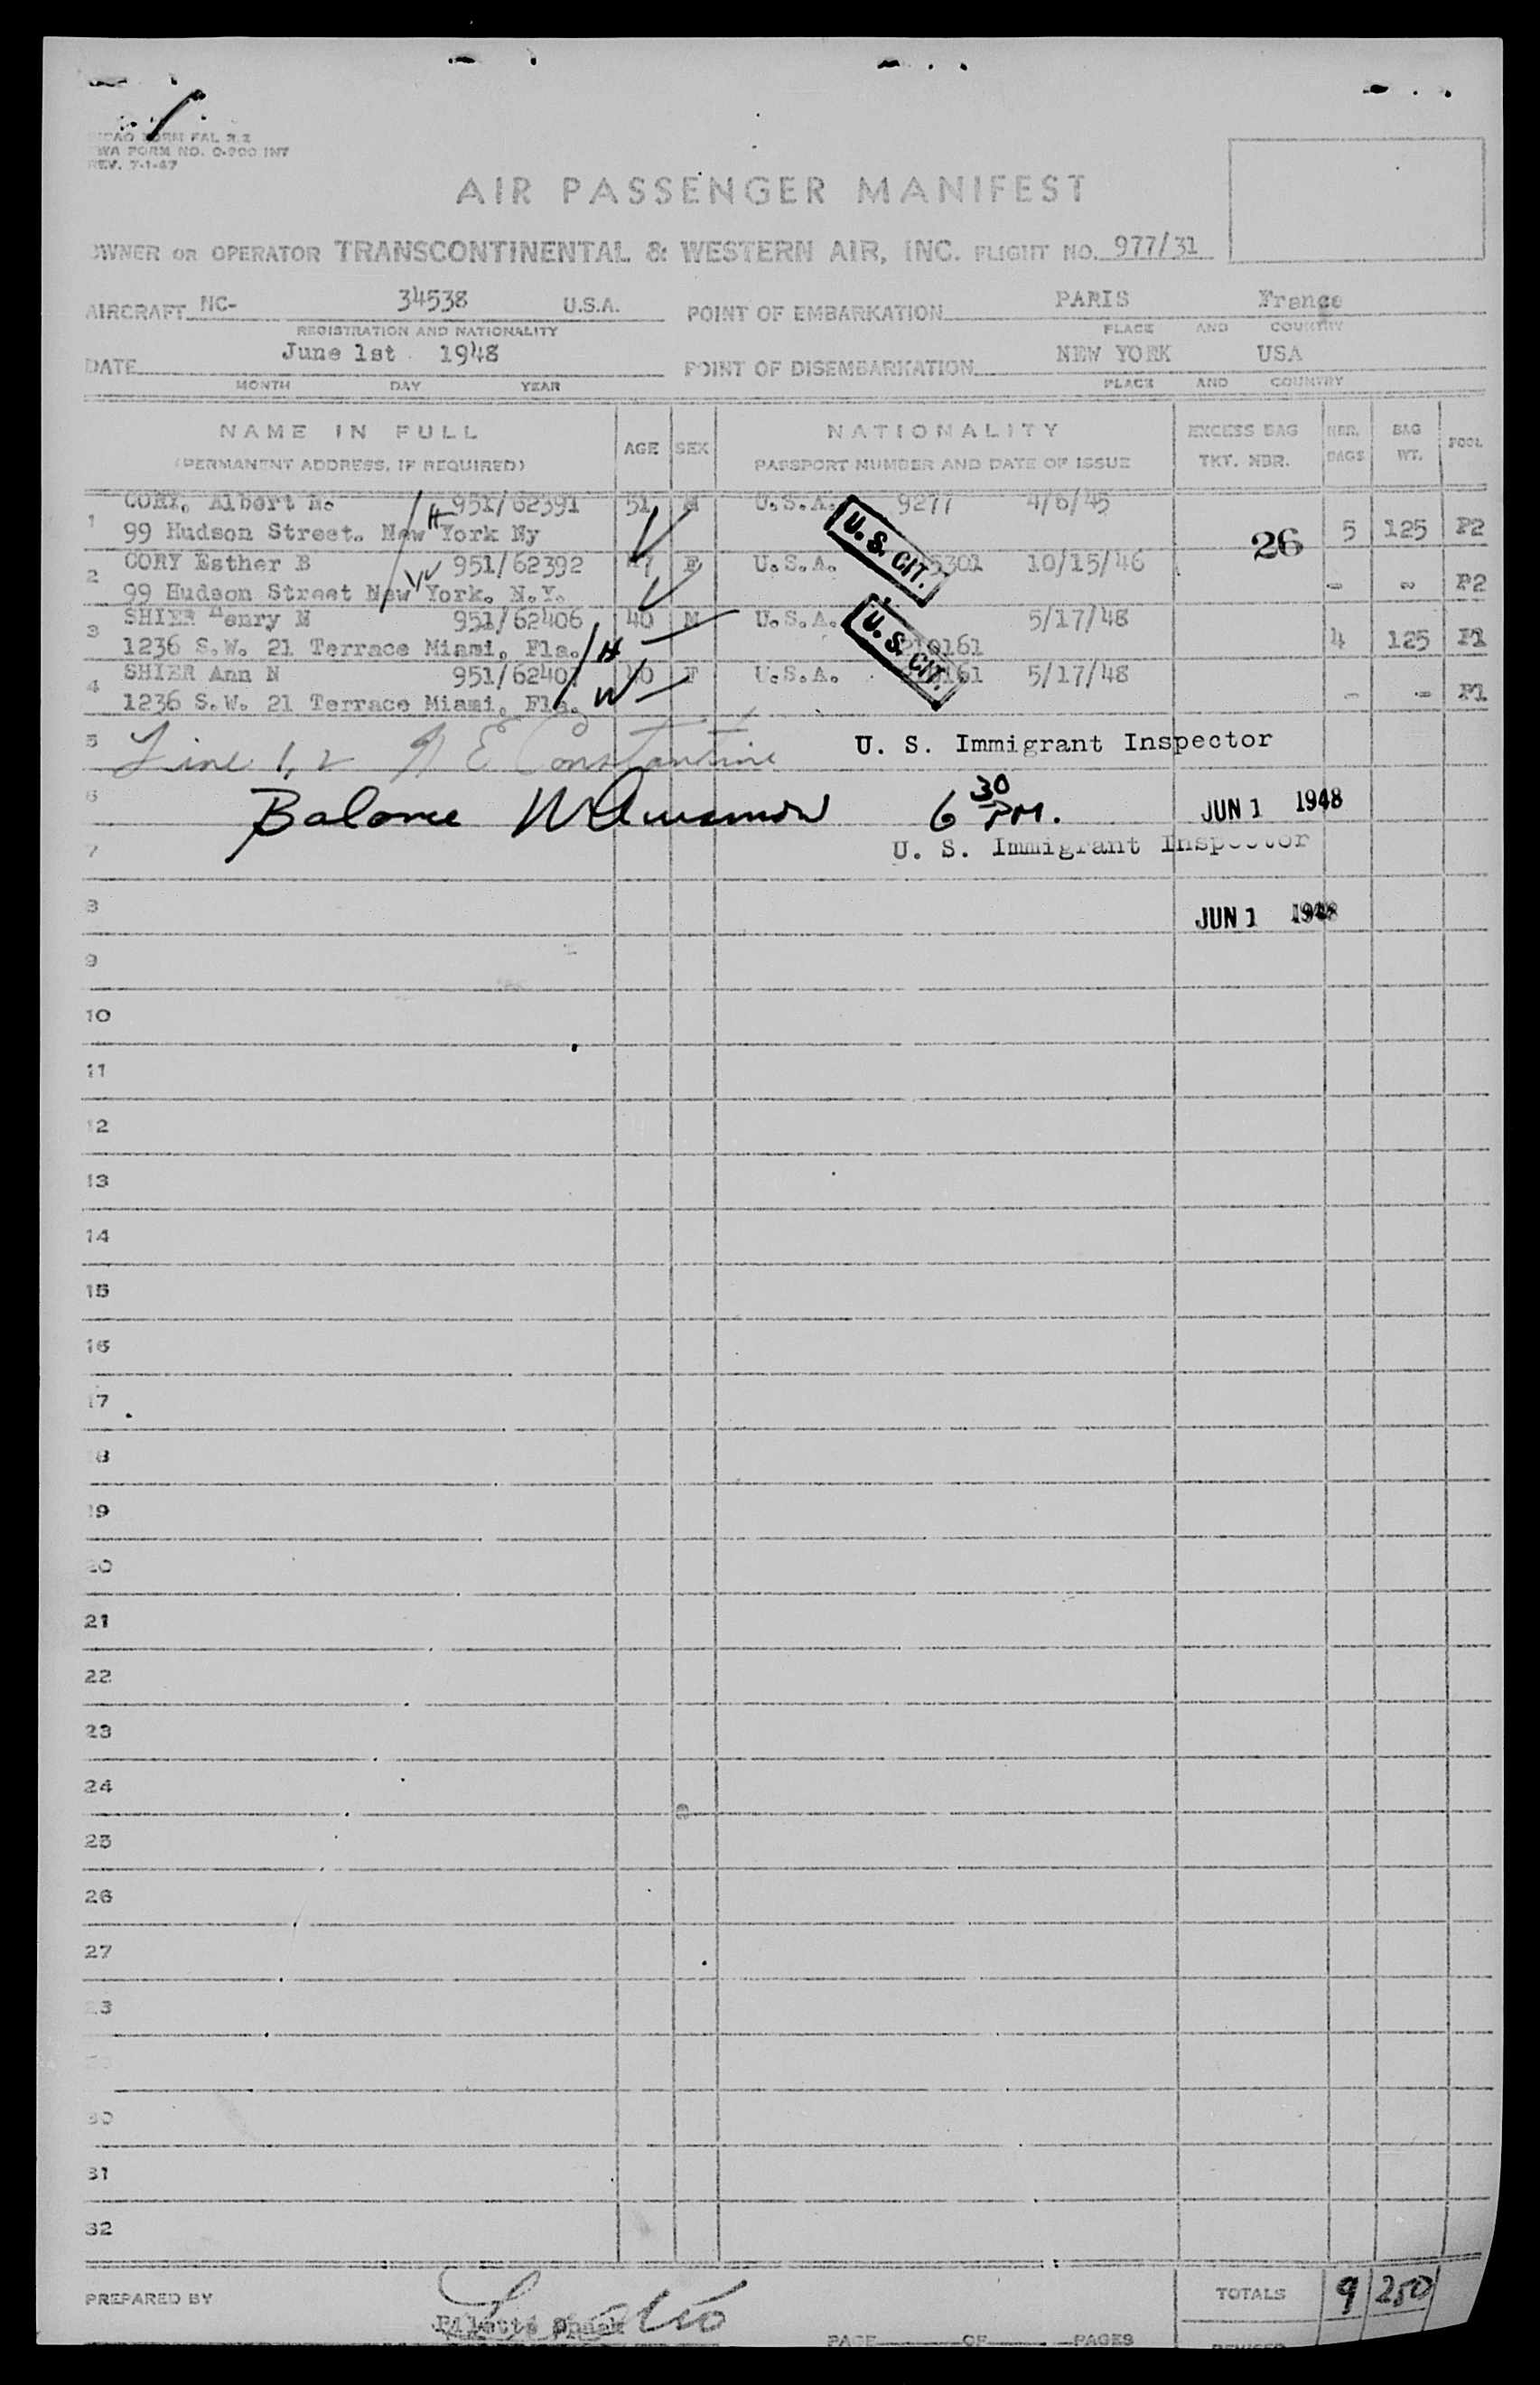 ICAO FORM FAL R.2
TWA FORM NO. O-900 INT
REV. 7-1-47
AIR PASSENGER MANIFEST
OWNER OR OPERATOR TRANSCONTINENTAL & WESTERN AIR, INC. FLIGHT NO. 977/31
AIRCRAFT NC- 34538 U.S.A. POINT OF EMBARKATION PARIS France
REGISTRATION AND NATIONALITY PLACE AND COUNTRY
DATE June 1st 1948 POINT OF DISEMBARKATION NEW YORK USA
MONTH DAY YEAR PLACE AND COUNTRY
NAME IN FULL AGE SEX NATIONALITY EXCESS BAG NBR. BAG POOL
(PERMANENT ADDRESS, IF REQUIRED) PASSPORT NUMBER AND DATE OF ISSUE TKT. NBR. BAGS WT.
1 CORY, Albert N. 951/62391 51 M U.S.A. 9277 4/6/45
99 Hudson Street. New York Ny H U.S. CIT. 26 5 125 P2
2 CORY Esther B 951/62392 47 F U.S.A. 5301 10/15/46
99 Hudson Street New York. N.Y. W - - P2
3 SHIER Henry M 951/62406 40 M U.S.A. 5/17/48
1236 S.W. 21 Terrace Miami, Fla. H 210161 U.S. CIT. 4 125 P1
4 SHIER Ann N 951/62407 40 F U.S.A. 0161 5/17/48
1236 S.W. 21 Terrace Miami, Fla. W - - P1
5 Line 1, 2 N E Constantine U. S. Immigrant Inspector
6 Balance 6 30 PM. JUN 1 1948
7 U. S. Immigrant Inspector
8 JUN 1 1948
9
10
11
12
13
14
15
16
17
18
19
20
21
22
23
24
25
26
27
28
30
31
32
PREPARED BY TOTALS 9 250
PAGE OF PAGES